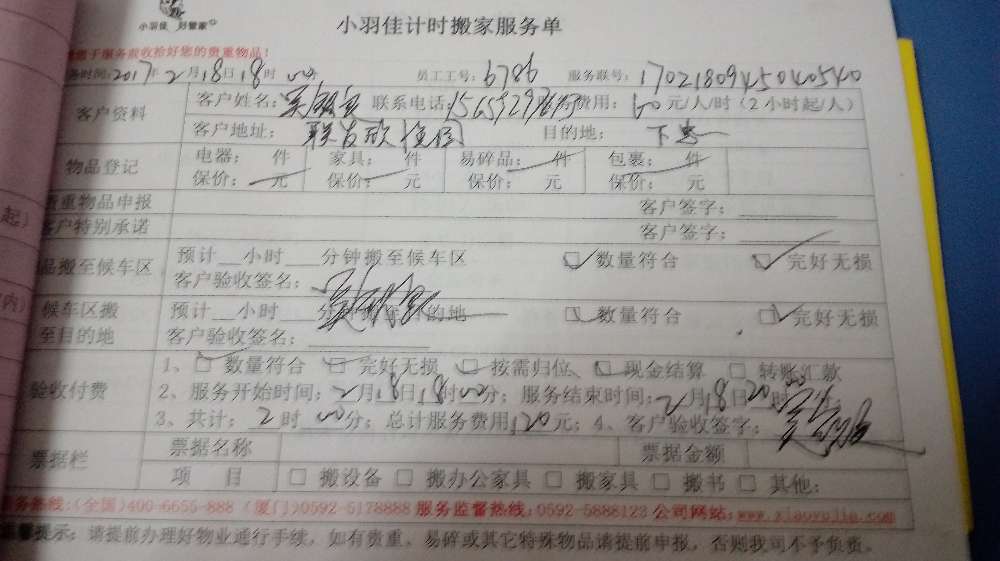 小羽佳 好管家
小羽佳计时搬家服务单
于服务前收拾好您的贵重物品!
务时间:2017年2月18日18时00分 员工工号:6786 服务联号:1702180945040540
客户资料 客户姓名: 联系电话: 服务费用:60元/人/时(2小时起/人)
客户地址: 目的地:下忠
物品登记 电器: 件 家具: 件 易碎品: 件 包裹: 件
保价: 元 保价: 元 保价: 元 保价: 元
贵重物品申报 客户签字:
客户特别承诺 客户签字:
品搬至候车区 预计__小时__分钟搬至候车区 数量符合 完好无损
客户验收签名:
候车区搬至目的地 预计__小时 分 目的地 数量符合 完好无损
客户验收签名:
验收付费 1、数量符合 完好无损 按需归位 现金结算 转账汇款
2、服务开始时间:2月18日18时00分;服务结束时间:2月18日20时00分;
3、共计:2时00分;总计服务费用120元;4、客户验收签字:
票据栏 票据名称 票据金额
项 目 搬设备 搬办公家具 搬家具 搬书 其他:
服务热线:(全国)400-6655-888 (厦门)0592-5178888 服务监督热线:0592-5888123 公司网站:www.xiaoyujia.com
温馨提示:请提前办理好物业通行手续,如有贵重、易碎或其它特殊物品请提前申报,否则我司不予负责。
起)
内)